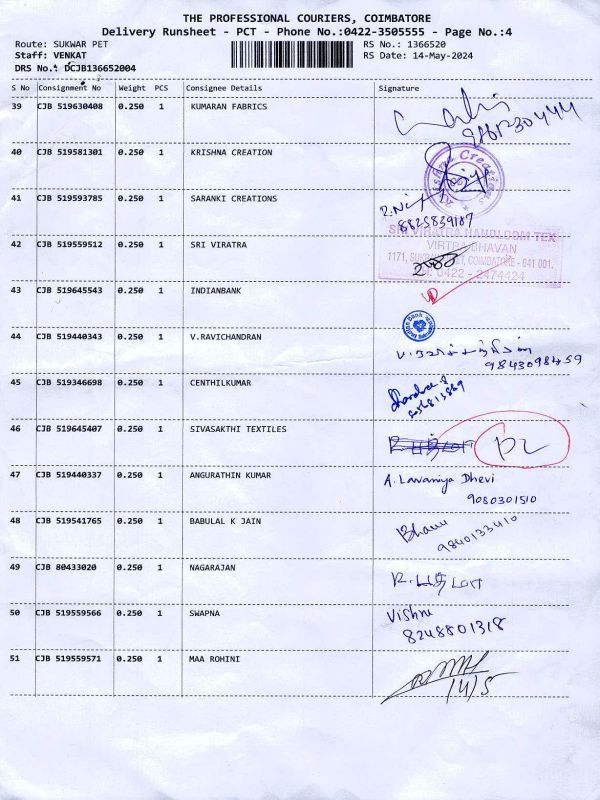 THE PROFESSIONAL COURIERS, COIMBATORE
Delivery Runsheet - PCT - Phone No.:0422-3505555 - Page No.:4
Route: SUKWAR PET
RS No.: 1366520
Staff: VENKAT
RS Date: 14-May-2024
DRS No.: DCJB136652004
S No Consignment No Weight PCS Consignee Details Signature
39 CJB 519630408 0.250 1 KUMARAN FABRICS
40 CJB 519581301 0.250 1 KRISHNA CREATION
Krishna Creations
41 CJB 519593785 0.250 1 SARANKI CREATIONS
8825839187
42 CJB 519559512 0.250 1 SRI VIRATRA
SRI VIRATRA HANDLOOM TEX
VIRTRA BHAVAN
COIMBATORE - 641 001.
0422 - 2474424
43 CJB 519645543 0.250 1 INDIANBANK
Indian Bank
44 CJB 519440343 0.250 1 V.RAVICHANDRAN
9843098459
45 CJB 519346698 0.250 1 CENTHILKUMAR
46 CJB 519645407 0.250 1 SIVASAKTHI TEXTILES
DL
47 CJB 519440337 0.250 1 ANGURATHIN KUMAR A. Lavaniya Dhevi
9080301510
48 CJB 519541765 0.250 1 BABULAL K JAIN
9840133410
49 CJB 80433020 0.250 1 NAGARAJAN
50 CJB 519559566 0.250 1 SWAPNA Vishnu
8248801318
51 CJB 519559571 0.250 1 MAA ROHINI
14/5